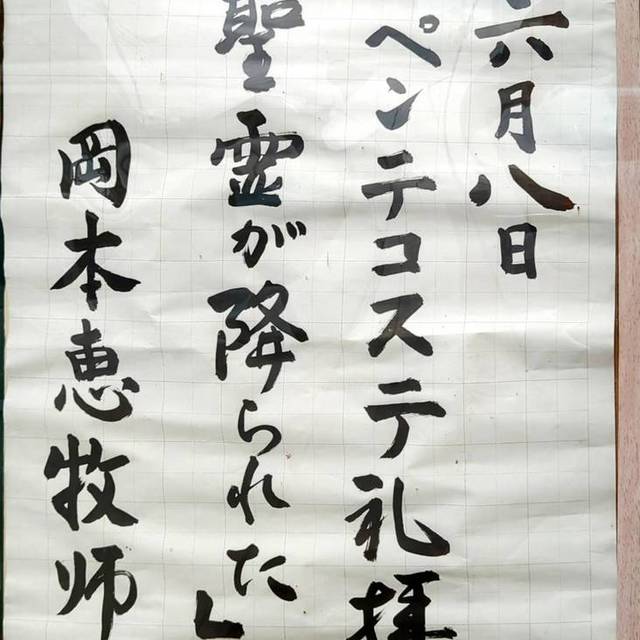 六月八日
ペンテコステ礼拝
聖霊が降られた」
岡本恵牧师